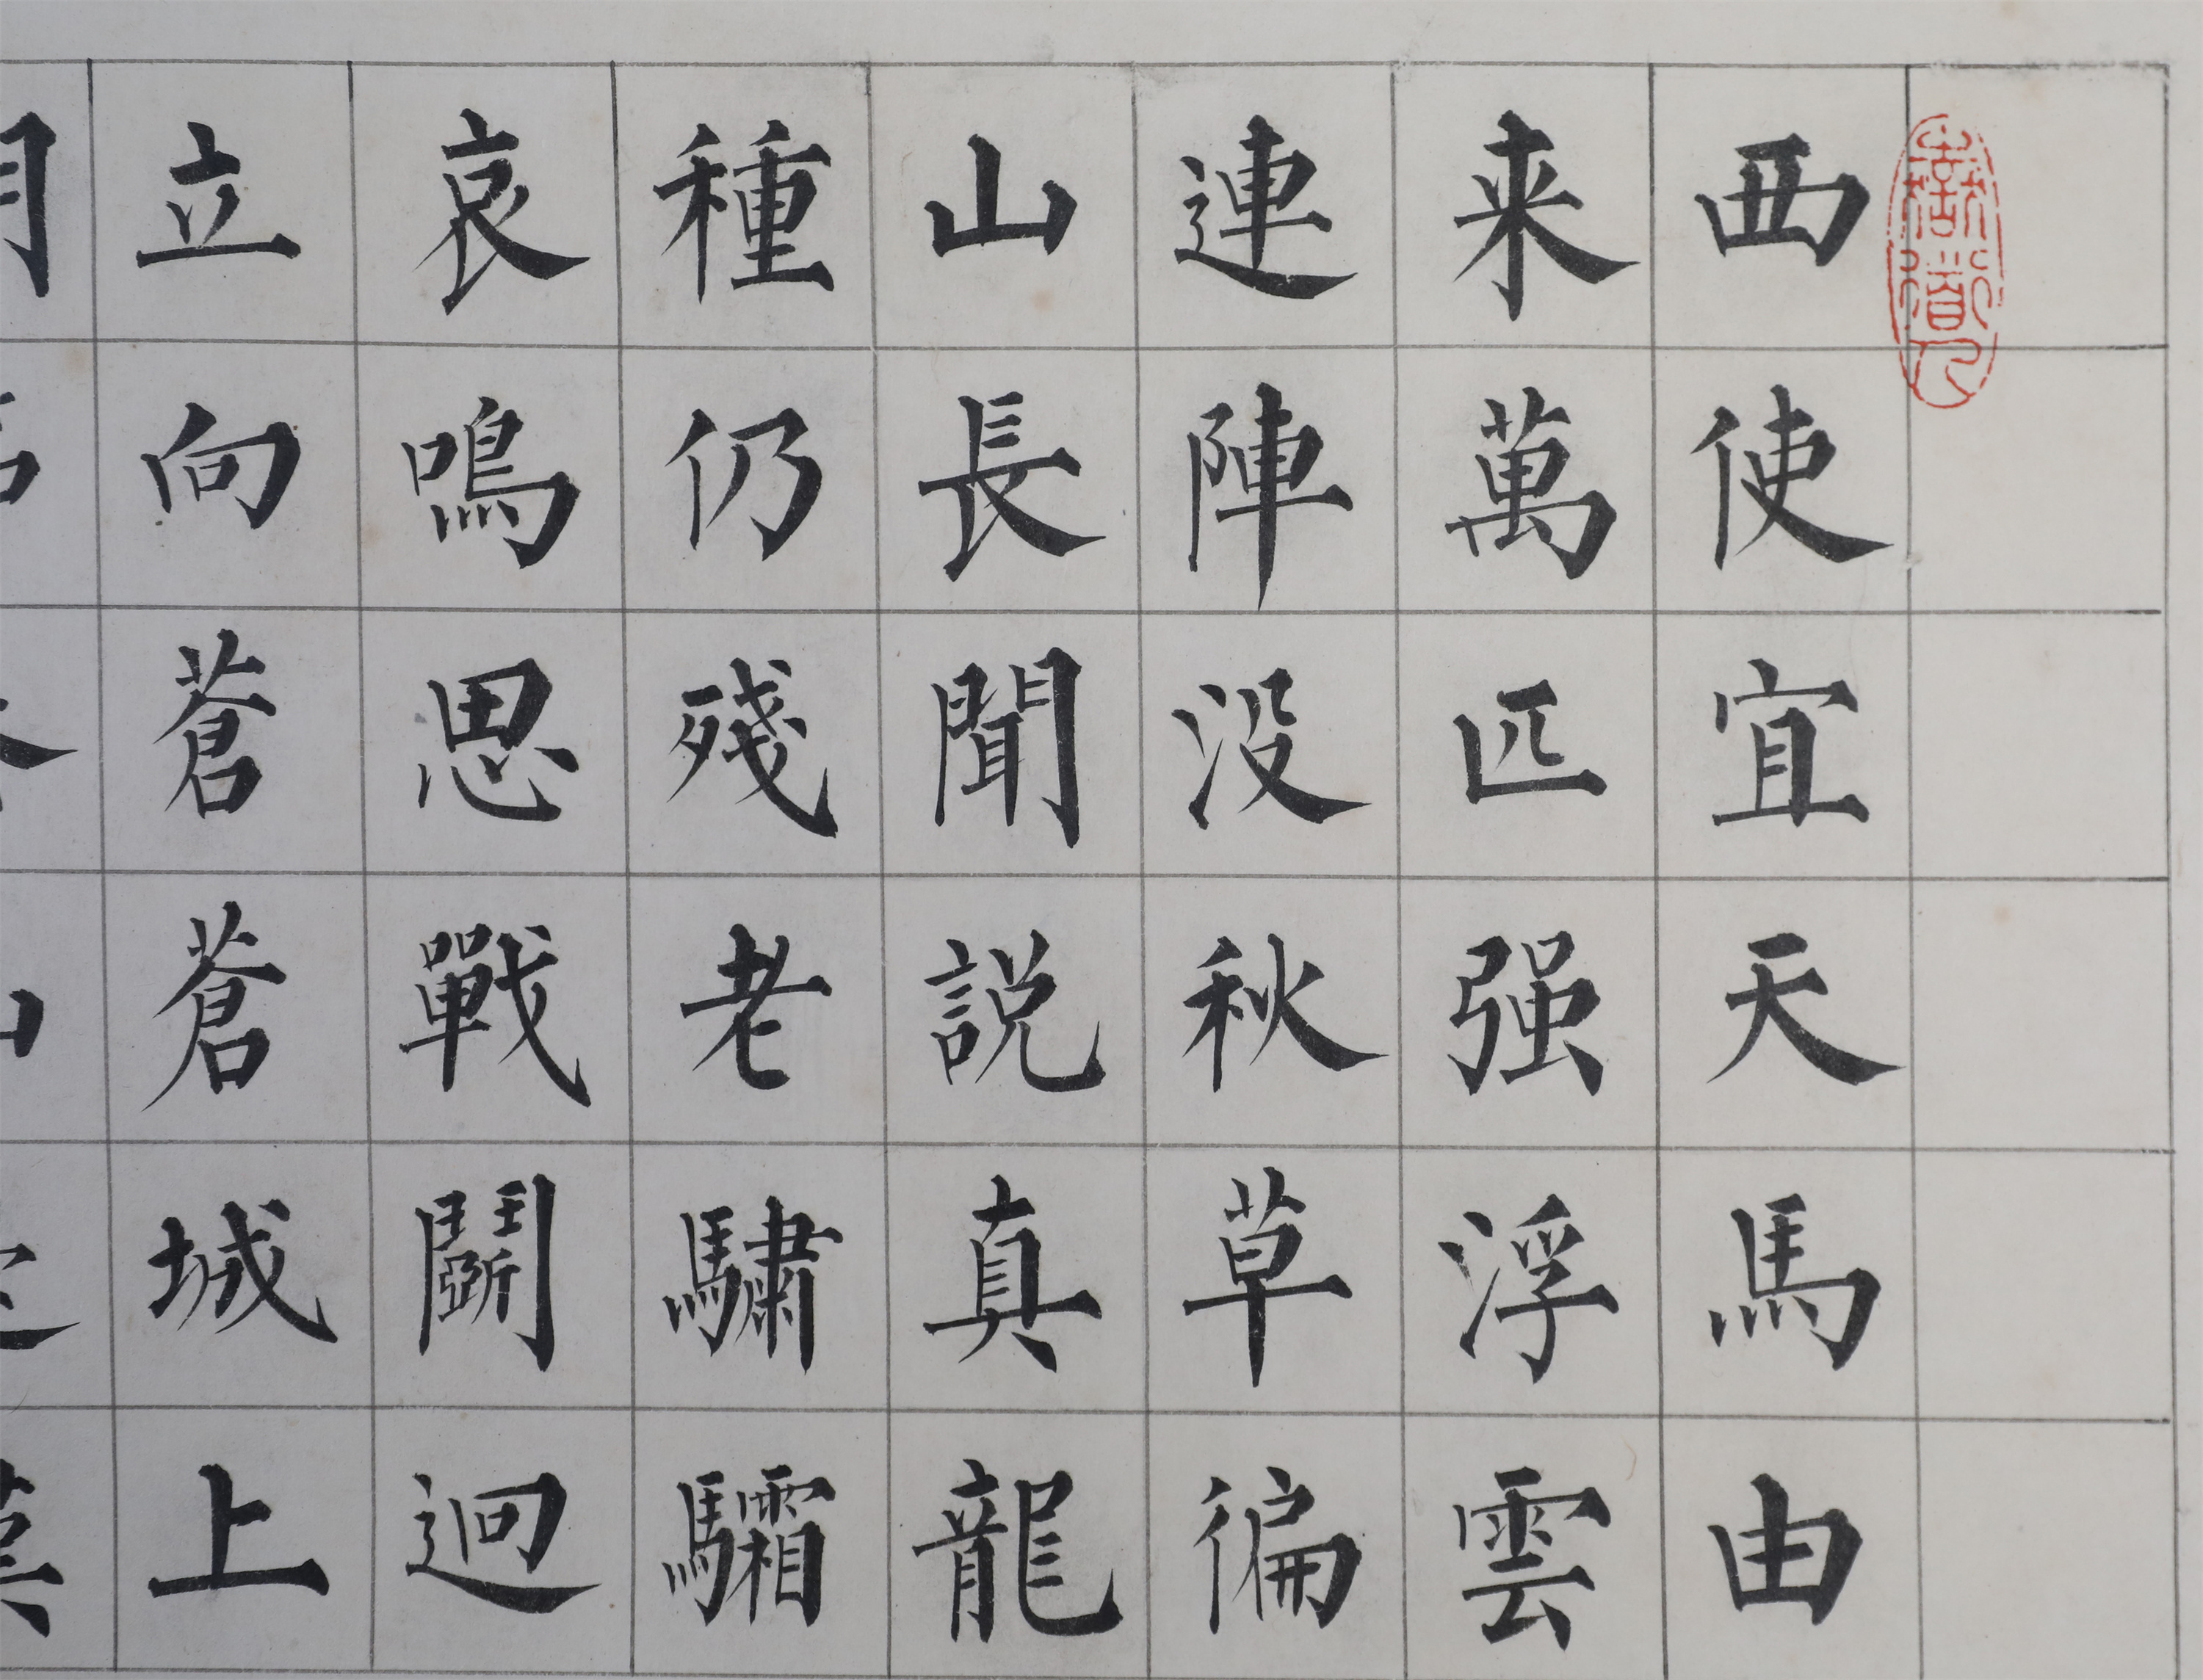 西使宜天馬由
来萬匹强浮雲
連陣没秋草徧
山長聞説真龍
種仍殘老驌驦
哀鳴思戰鬬迥
立向蒼蒼城上